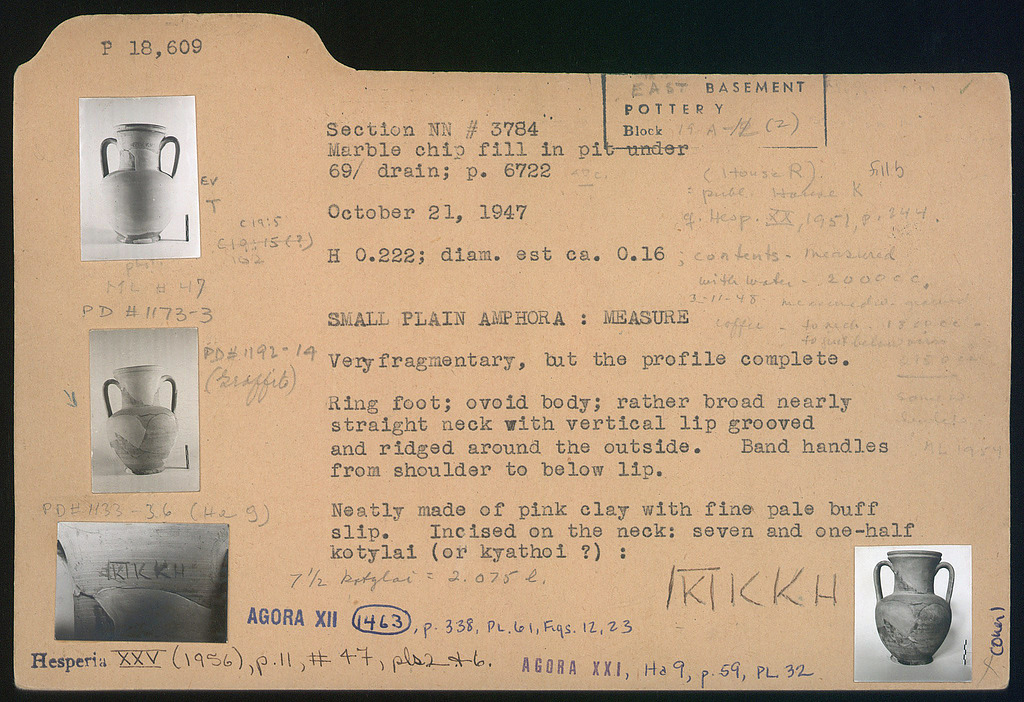 P 18,609
EAST BASEMENT
POTTERY
Block 19 A (2)
Section NN # 3784
Marble chip fill in pit under
69/ drain; p. 6722
(House R). Fill b
publ. House K
cf. Hesp. XX, 1951, p. 244.
October 21, 1947
H 0.222; diam. est ca. 0.16 ; contents - measured
with water - 2000 cc.
3-11-48
coffee
SMALL PLAIN AMPHORA : MEASURE
Very fragmentary, but the profile complete.
Ring foot; ovoid body; rather broad nearly
straight neck with vertical lip grooved
and ridged around the outside. Band handles
from shoulder to below lip.
Neatly made of pink clay with fine pale buff
slip. Incised on the neck: seven and one-half
kotylai (or kyathoi ?) :
7 1/2 kotylai = 2.075 l.
ΚΚΚΗ
AGORA XII 1463, p. 338, PL. 61, Figs. 12, 23
Hesperia XXV (1956), p. 11, # 47, pls 2 + 6.
AGORA XXI, Ha 9, p. 59, PL. 32
EV
T
C 19:5
C 19:15 (?)
photo
ML # 47
PD # 1173-3
PD # 1192-14
(Graffito)
PD # 1133-36 (Ha 9)